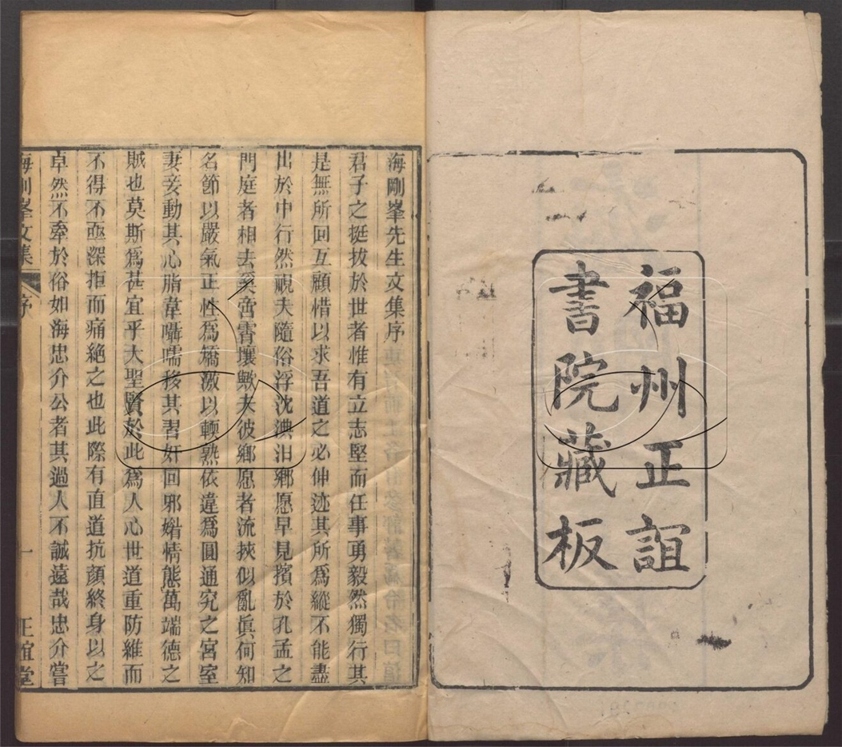 福州正誼
書院藏板
海剛峯先生文集序
君子之挺拔於世者惟有立志堅而任事勇毅然獨行其
是無所回互顧惜以求吾道之必伸迹其所為縱不能盡
出於中行然視夫隨俗浮沈淟汩鄉愿早見擯於孔孟之
門庭者相去奚啻霄壤歟夫彼鄉愿者流挾似亂眞何知
名節以嚴氣正性為矯激以輭熟依違為圓通究之宮室
妻妾動其心脂韋囁嚅移其習奸回邪媚情態萬端德之
賊也莫斯為甚宜乎大聖賢於此為人心世道重防維而
不得不亟深拒而痛絶之也此際有直道抗顏終身以之
卓然不牽於俗如海忠介公者其過人不誠遠哉忠介嘗
海剛峯文集
序
一
正誼堂